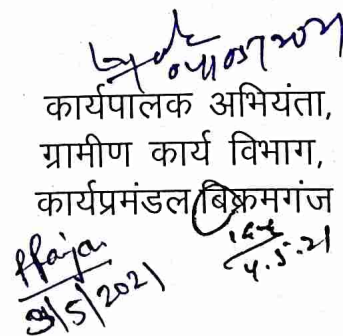 04/05/2021
कार्यपालक अभियंता,
ग्रामीण कार्य विभाग,
कार्यप्रमंडल बिक्रमगंज
4.5.21
/5/2021